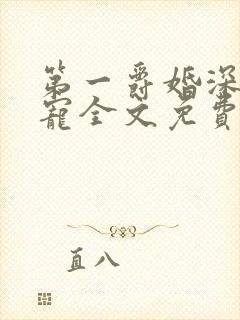 第一爵婚深
宠全文免费
直八